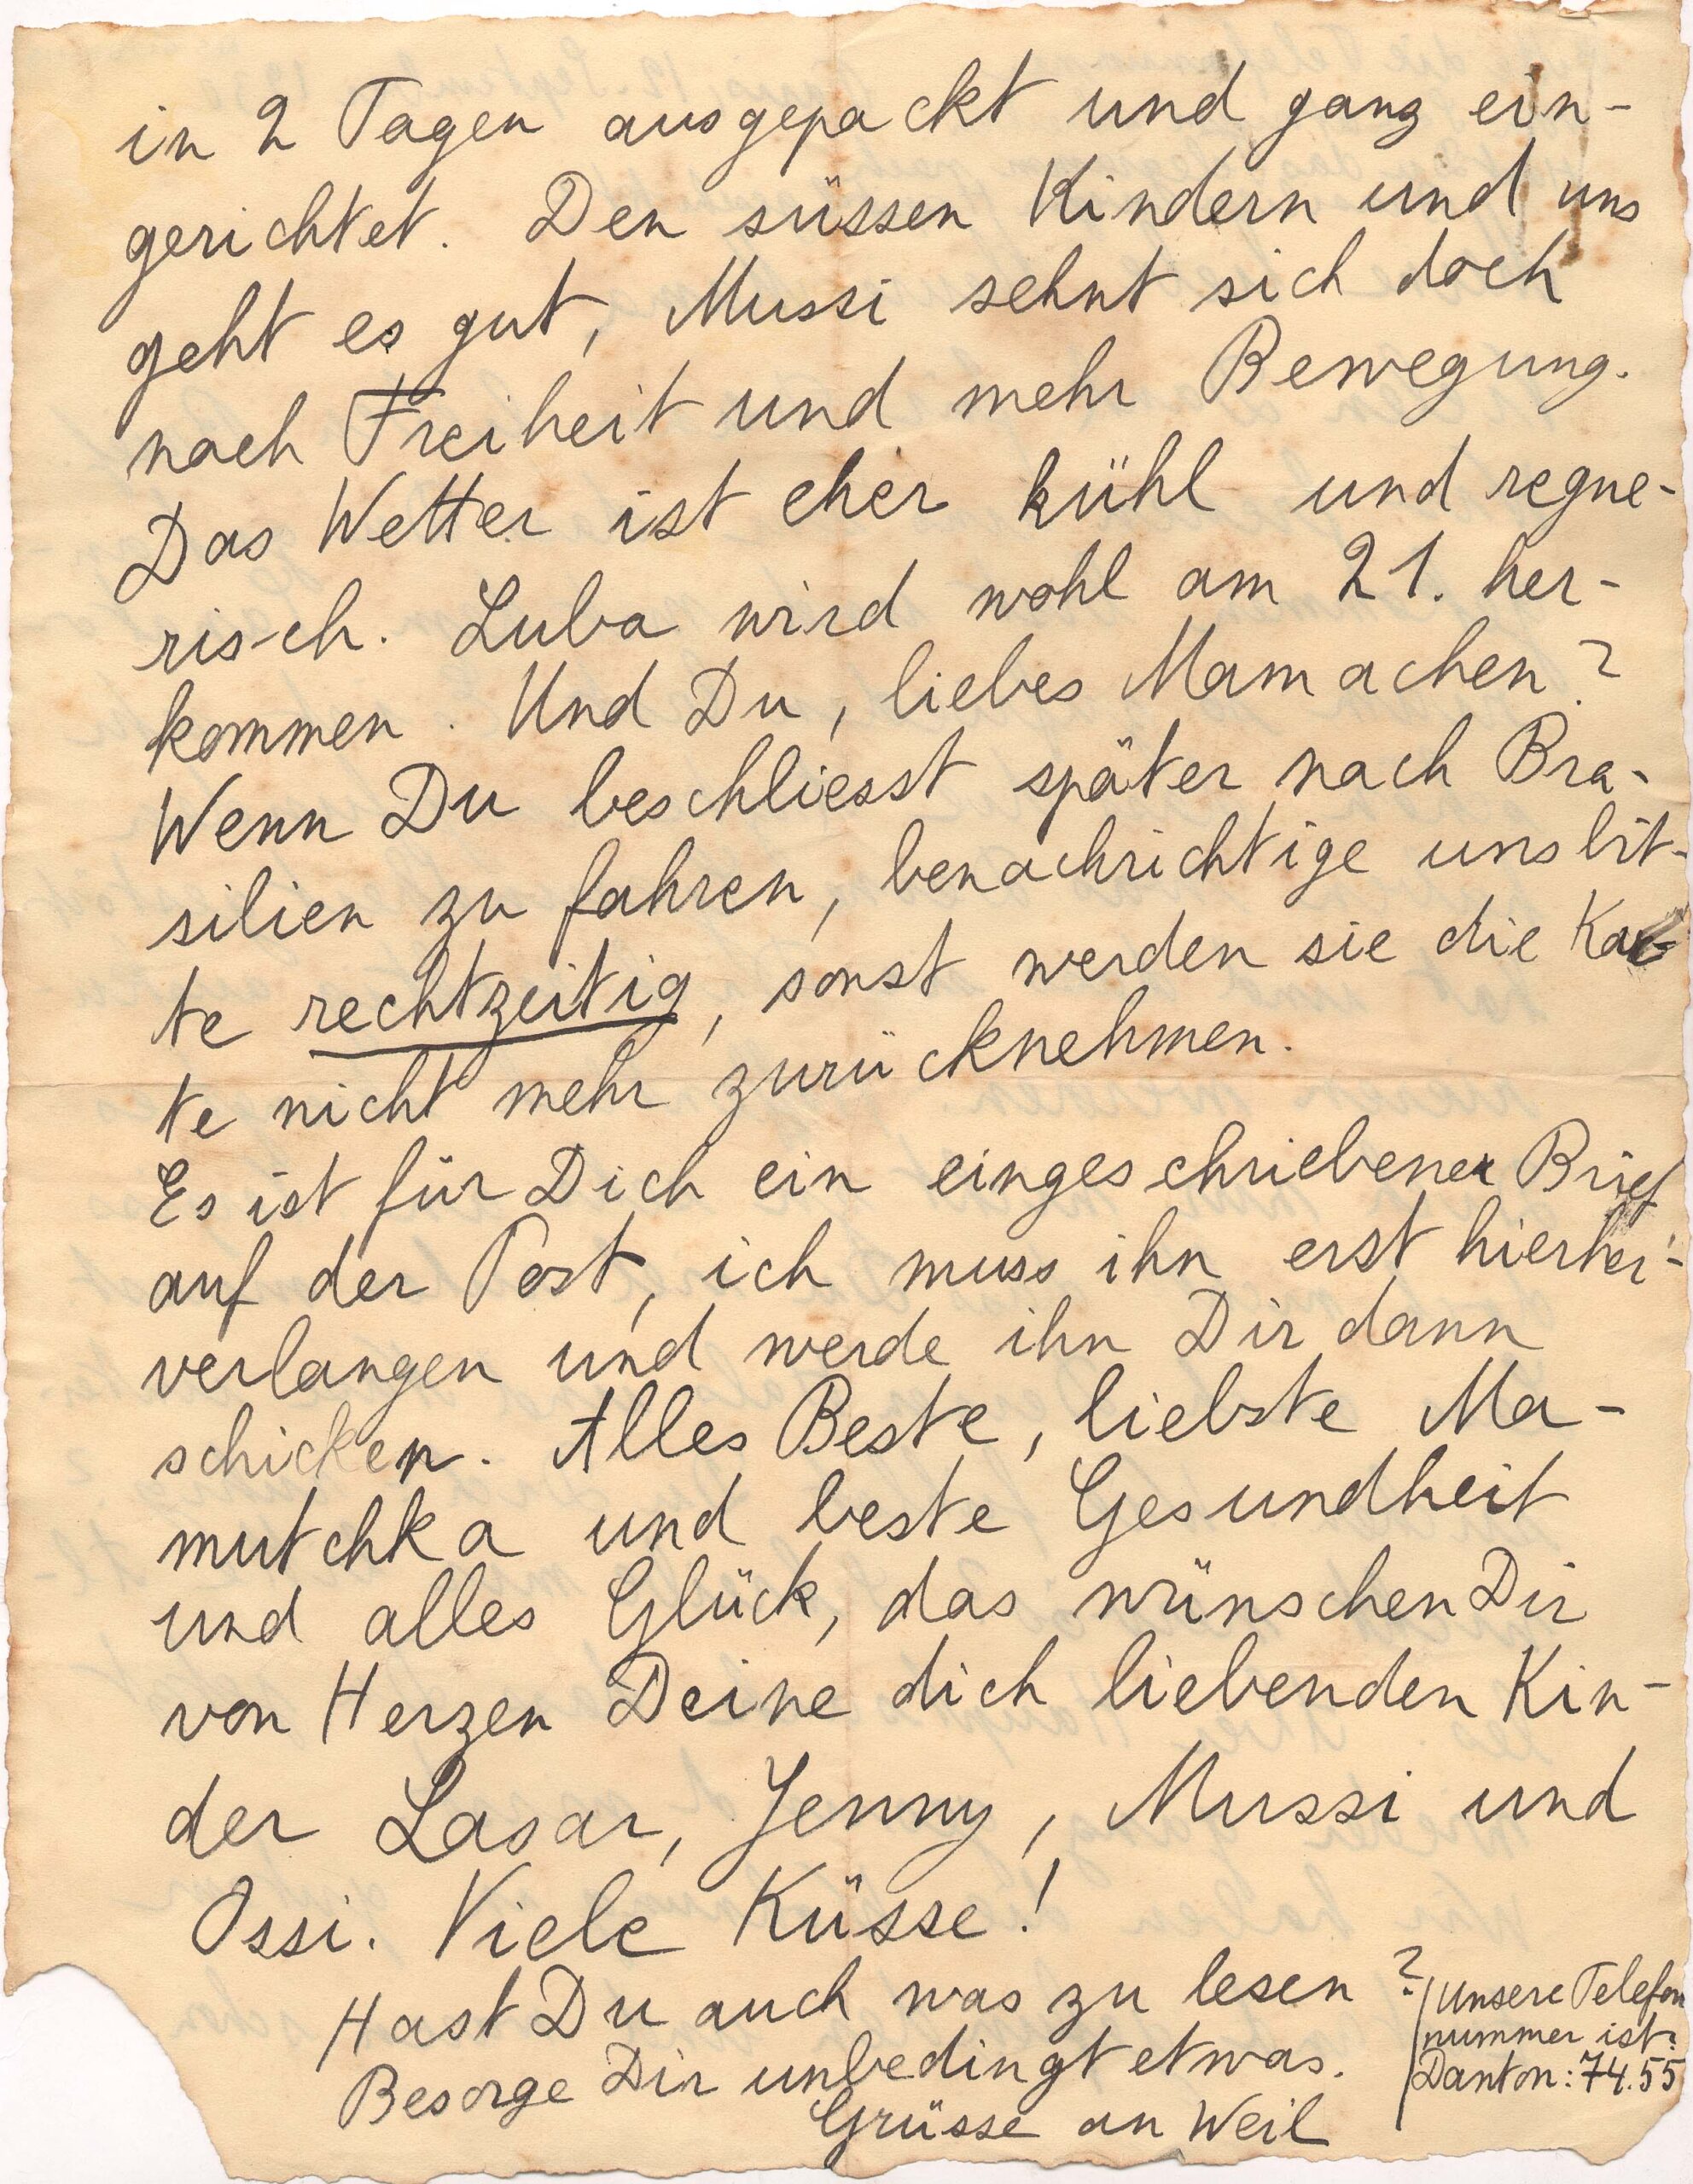 in 2 Tagen ausgepackt und ganz ein-
gerichtet. Den süssen Kindern und uns
geht es gut, Mussi sehnt sich doch
nach Freiheit und mehr Bewegung.
Das Wetter ist eher kühl und regne-
risch. Luba wird wohl am 21. her-
kommen. Und Du, liebes Mamachen?
Wenn Du beschliesst später nach Bra-
silien zu fahren, benachrichtige uns bit-
te rechtzeitig, sonst werden sie die Kar-
te nicht mehr zurücknehmen.
Es ist für Dich ein eingeschriebener Brief
auf der Post, ich muss ihn erst hierher-
verlangen und werde ihn Dir dann
schicken. Alles Beste, liebste Ma-
mutchka und beste Gesundheit
und alles Glück, das wünschen Dir
von Herzen Deine dich liebenden Kin-
der Lasar, Jenny, Mussi und
Ossi. Viele Küsse!
Hast Du auch was zu lesen?
Besorge Dir unbedingt etwas.
Grüsse an Weil
Unsere Telefon
nummer ist:
Danton: 74.55